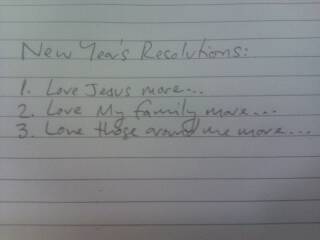 New Year's Resolutions:
1. Love Jesus more...
2. Love My family more...
3. Love those around me more...